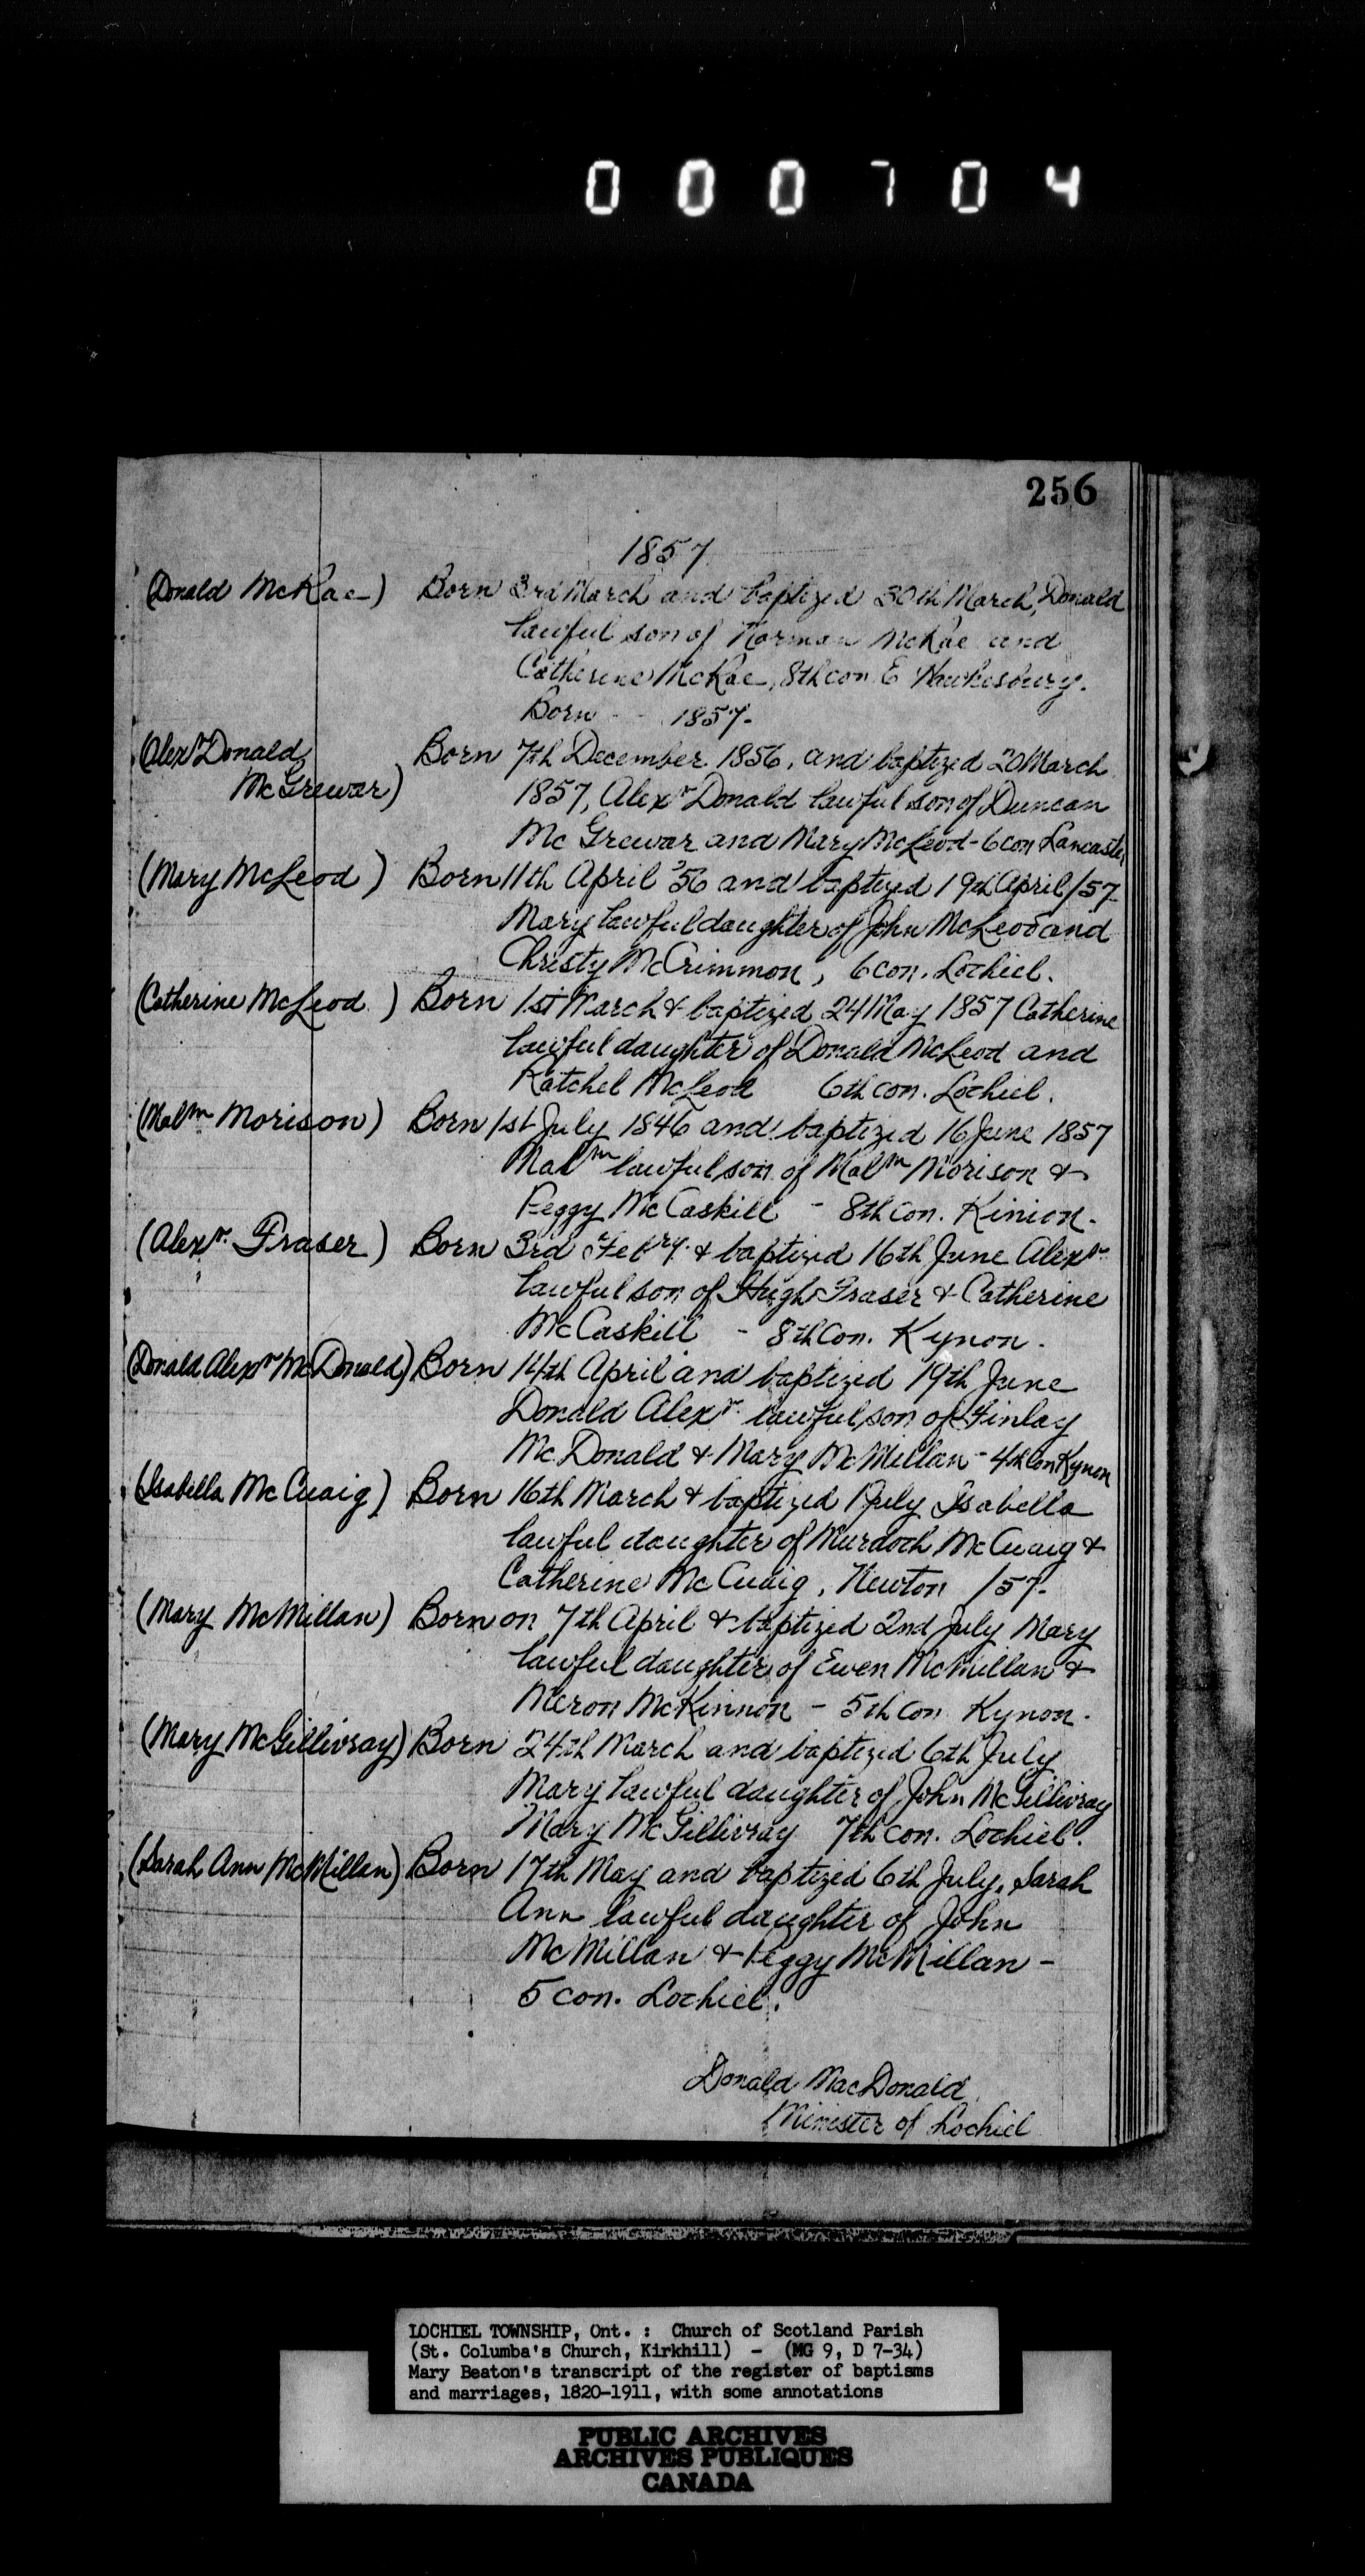 000704
256
1857
(Donald McRae) Born 3rd March and baptized 30th March, Donald
lawful son of Norman McRae and
Catherine McRae, 8th con. E Hawkesbury.
Born - - 1857.
(Alexr Donald Born 7th December 1856, and baptized 20 March
McGrewar) 1857, Alexr Donald lawful son of Duncan
McGrewar and Mary McLeod - 6 con Lancaster
(Mary McLeod) Born 11th April '56 and baptized 19th April /57
Mary lawful daughter of John McLeod and
Christy McCrimmon, 6 con. Lochiel.
(Catherine McLeod) Born 1st March & baptized 24 May 1857 Catherine
lawful daughter of Donald McLeod and
Ratchel McLeod 6th con. Lochiel.
(Malm Morison) Born 1st July 1846 and baptized 16 June 1857
Malm lawful son of Malm Morison &
Peggy McCaskill - 8th con. Kinion.
(Alexr. Fraser) Born 3rd Febry. & baptized 16th June Alexr
lawful son of Hugh Fraser & Catherine
McCaskill - 8th Con. Kynon.
(Donald Alexr McDonald) Born 14th April and baptized 19th June
Donald Alexr. lawful son of Finlay
McDonald & Mary McMillan - 4th Con Kynon
(Isabella McCuaig) Born 16th March & baptized 1 July Isabella
lawful daughter of Murdoch McCuaig &
Catherine McCuaig, Newton /57.
(Mary McMillan) Born on 7th April & baptized 2nd July Mary
lawful daughter of Ewen McMillan &
Meron McKinnon - 5th con. Kynon.
(Mary McGillivray) Born 24th March and baptized 6th July
Mary lawful daughter of John McGillivray
Mary McGillivray 7th con. Lochiel.
(Sarah Ann McMillan) Born 17th May and baptized 6th July, Sarah
Ann lawful daughter of John
McMillan & Peggy McMillan -
5 con. Lochiel.
Donald MacDonald
Minister of Lochiel
LOCHIEL TOWNSHIP, Ont. : Church of Scotland Parish
(St. Columba's Church, Kirkhill) - (MG 9, D 7-34)
Mary Beaton's transcript of the register of baptisms
and marriages, 1820-1911, with some annotations
PUBLIC ARCHIVES
ARCHIVES PUBLIQUES
CANADA